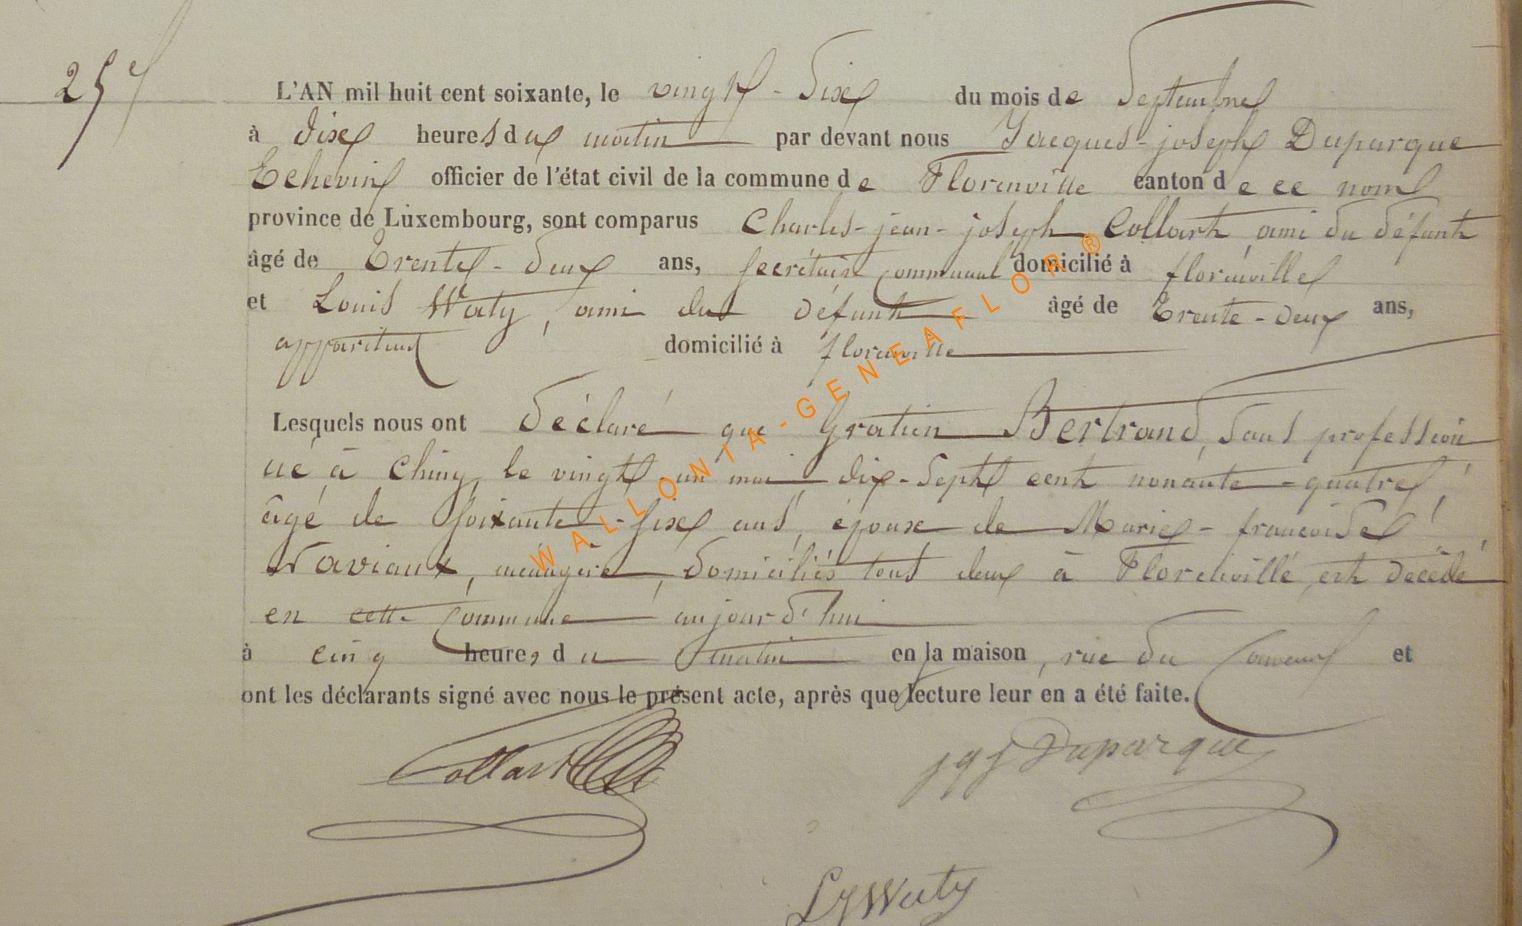 25e
L'AN mil huit cent soixante, le vingt-six du mois de Septembre
à dix heures du matin par devant nous Jacques-joseph Duparque
Echevin officier de l'état civil de la commune de Florenville canton de ce nom
province de Luxembourg, sont comparus Charles-jean-joseph Collart, ami du défunt
âgé de Trente-deux ans, Secrétaire communal domicilié à florenville
et Louis Waty, ami du défunt âgé de Trente-deux ans,
appariteur domicilié à florenville
Lesquels nous ont déclaré que Gratien Bertrand, Sans profession
né à Chiny le vingt un mai dix-Sept cent nonante-quatre,
âgé de Soixante-Six ans, époux de Marie-françoise
Naviaux, ménagère, domiciliés tous deux à Florenville, est décédé
en cette Commune aujourd'hui
à cinq heures du matin en la maison, rue du et
ont les déclarants signé avec nous le présent acte, après que lecture leur en a été faite.
Collart
Duparque
Waty
WALLONIA-GENEAFLOR®